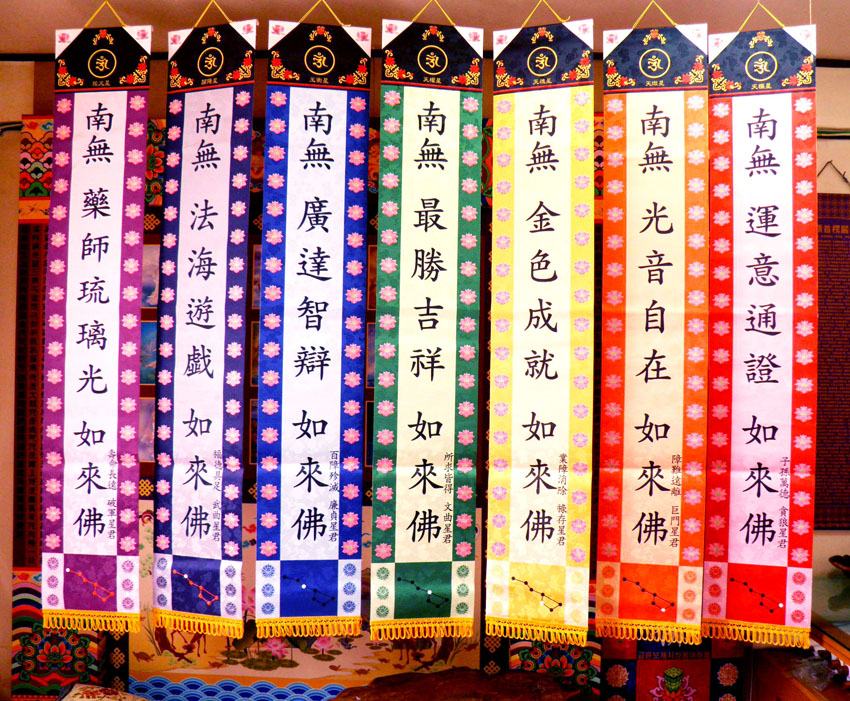 南無 運意通證 如來佛
子孫萬德 貪狼星君
南無 光音自在 如來佛
障難遠離 巨門星君
南無 金色成就 如來佛
業障消除 祿存星君
天權星
南無 最勝吉祥 如來佛
所求皆得 文曲星君
玉衡星
南無 廣達智辯 如來佛
百障殄滅 廉貞星君
南無 法海遊戲 如來佛
福德具足 武曲星君
南無 藥師琉璃光 如來佛
壽命長遠 破軍星君